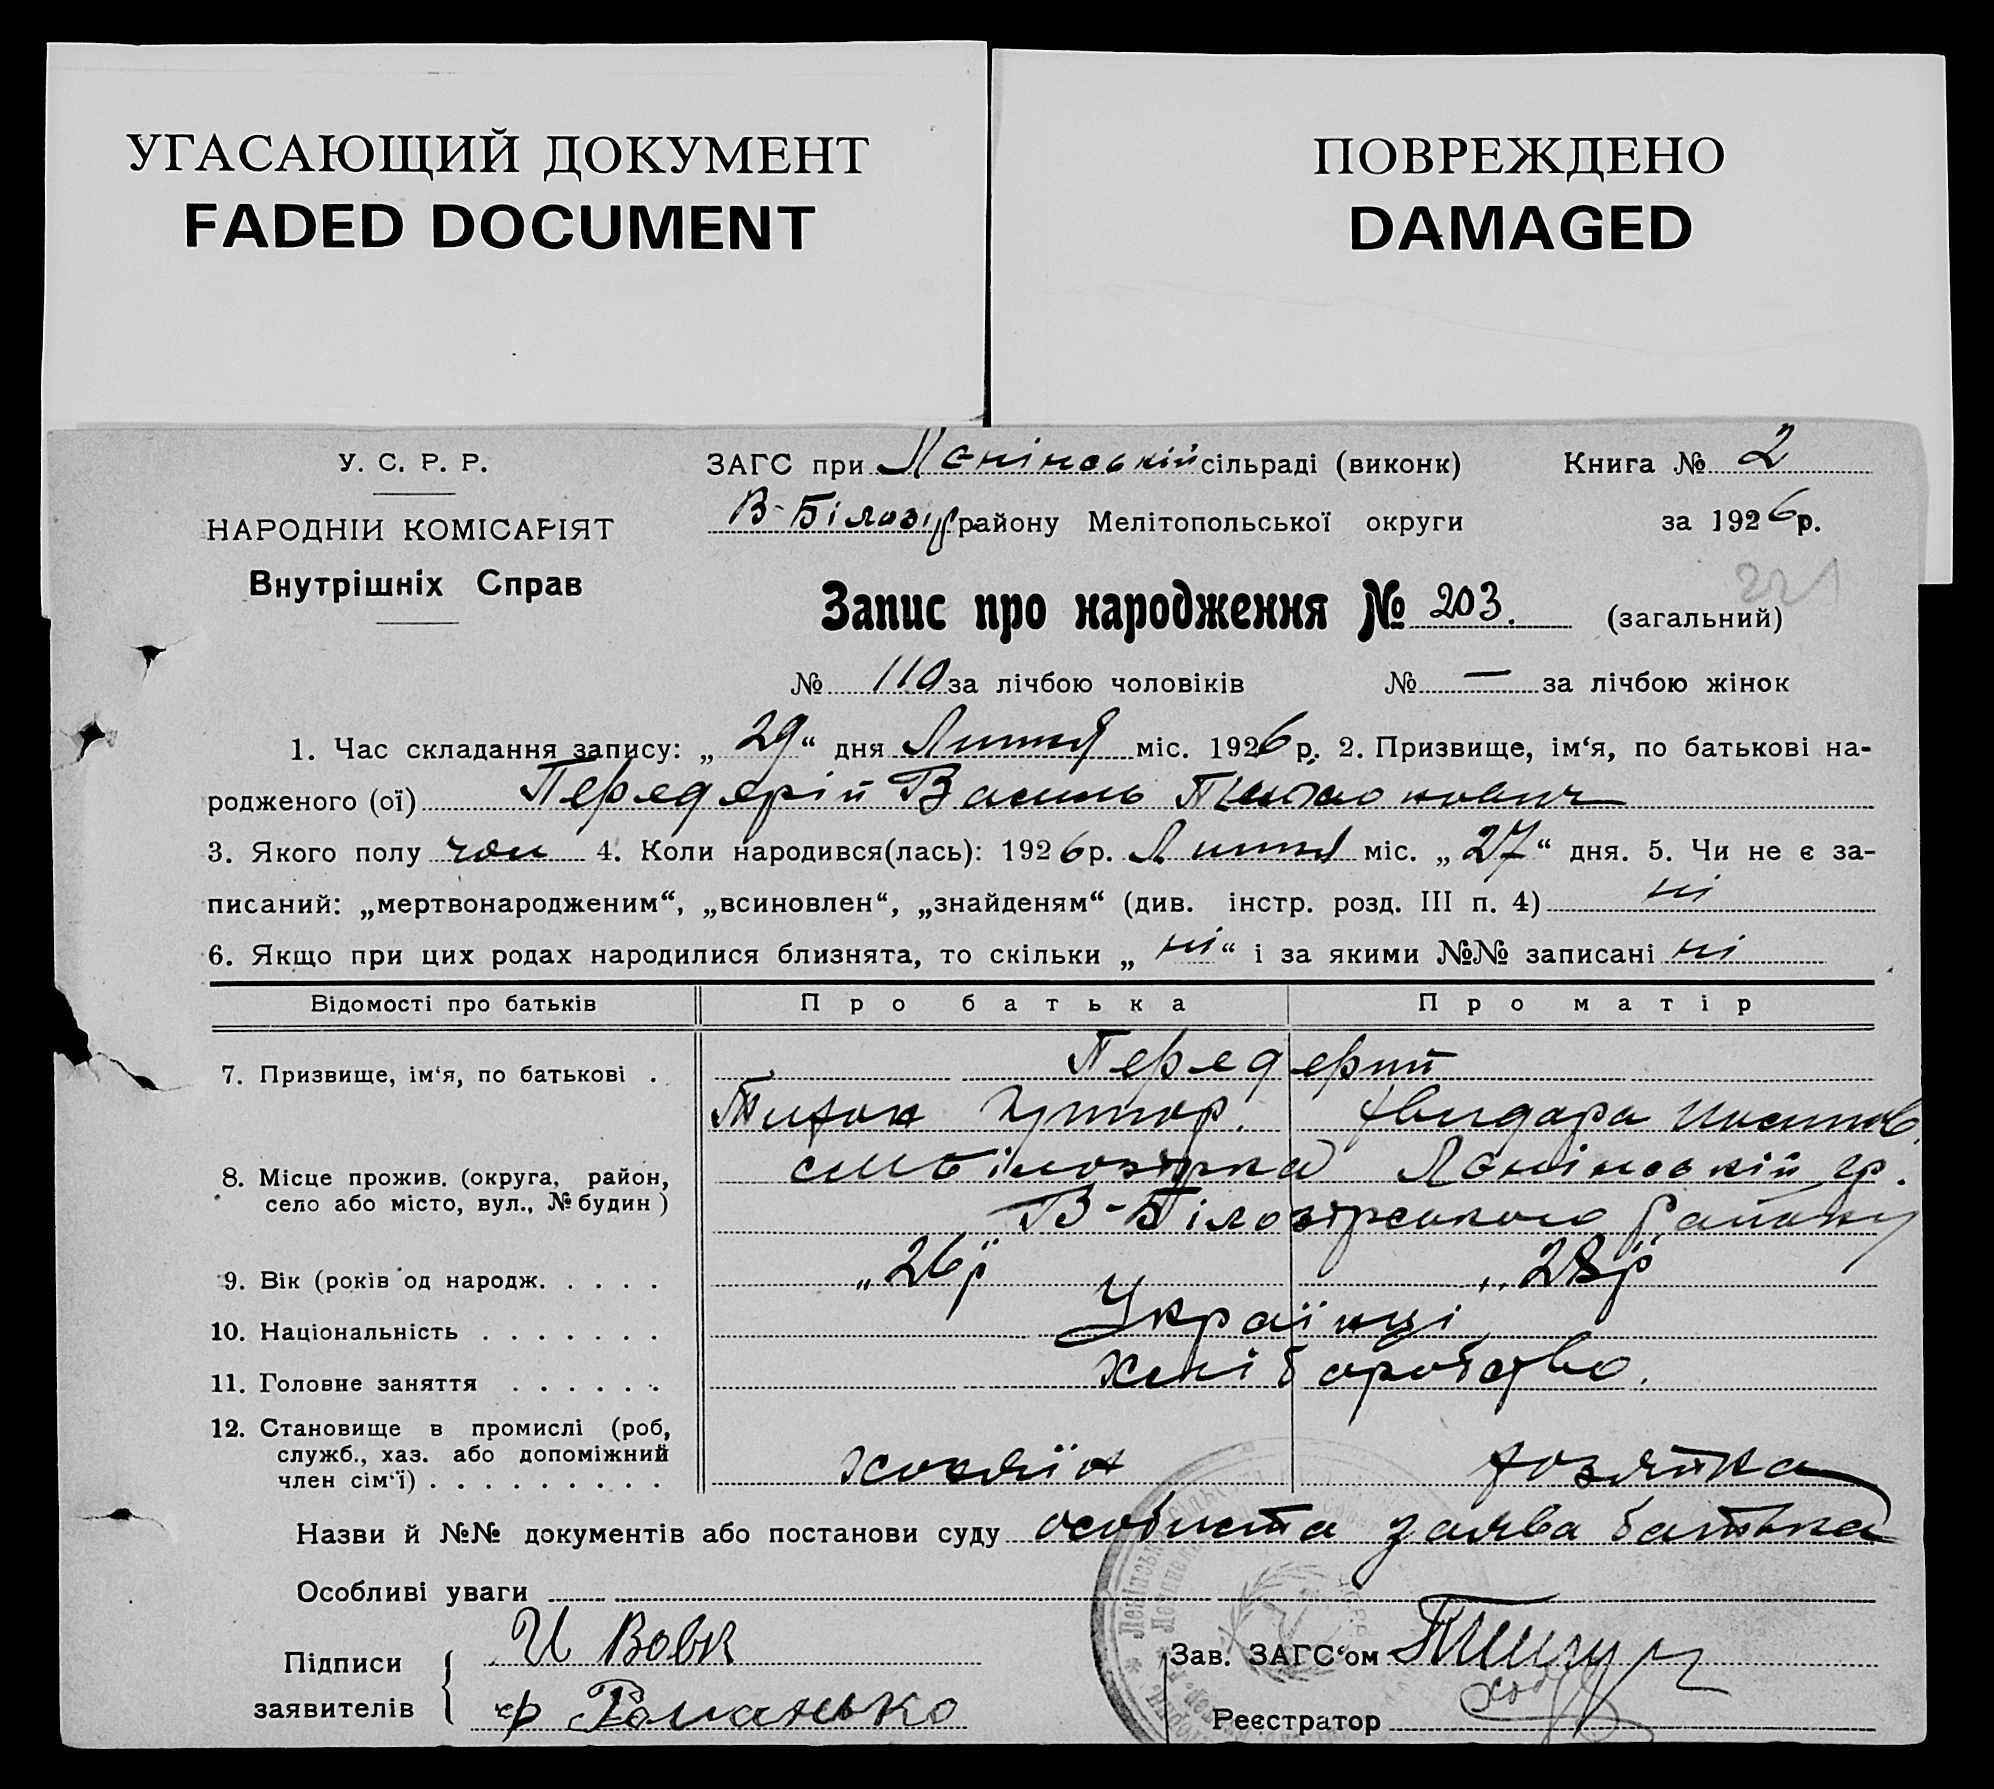 УГАСАЮЩИЙ ДОКУМЕНТ
FADED DOCUMENT
ПОВРЕЖДЕНО
DAMAGED
У. С. Р. Р.
НАРОДНІЙ КОМІСАРІЯТ
Внутрішніх Справ
ЗАГС при Ленінській сільраді (виконк) Книга № 2
В-Білозір району Мелітопольської округи за 1926 р.
221
Запис про народження № 203. (загальний)
№ 110 за лічбою чоловіків № — за лічбою жінок
1. Час складання запису: „29“ дня Липня міс. 1926 р. 2. Призвище, ім‘я, по батькові на-
родженого (ої) Передерій Василь Тихонович
3. Якого полу чол 4. Коли народився(лась): 1926 р. Липня міс. „27“ дня. 5. Чи не є за-
писаний: „мертвонародженим“, „всиновлен“, „знайденям“ (див. інстр. розд. III п. 4) ні
6. Якщо при цих родах народилися близнята, то скільки „ні“ і за якими №№ записані ні
Відомості про батьків Про батька Про матір
7. Призвище, ім‘я, по батькові . Передерий
Тихон
8. Місце прожив. (округа, район, Ленінській
село або місто, вул., № будин) В-Білозірського району
9. Вік (років од народж. . . . . „26 р „28 р
10. Національність . . . . . . . Українці
11. Головне заняття . . . . . . Хліборобство.
12. Становище в промислі (роб,
служб., хаз. або допоміжний
член сім‘ї) . . . . . . . . . хозяїн хозяйка
Назви й №№ документів або постанови суду особиста заява батька
Особливі уваги
Підписи заявителів И Вовк
Ф Романько
Зав. ЗАГС‘ом
Реєстратор